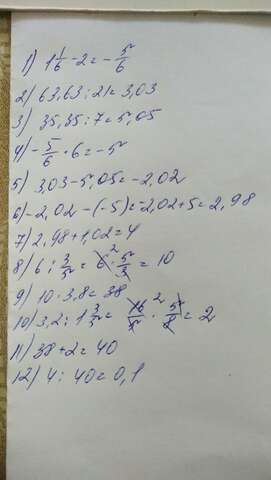 1) 1 1/6 - 2 = - 5/6
2) 63,63 : 21 = 3,03
3) 35,35 : 7 = 5,05
4) - 5/6 · 6 = - 5
5) 3,03 - 5,05 = - 2,02
6) - 2,02 - (-5) = -2,02 + 5 = 2,98
7) 2,98 + 1,02 = 4
8) 6 : 3/5 = 6 2 · 5/3 = 10
9) 10 · 3,8 = 38
10) 3,2 : 1 3/5 = 16/5 2 · 5/8 = 2
11) 38 + 2 = 40
12) 4 : 40 = 0,1